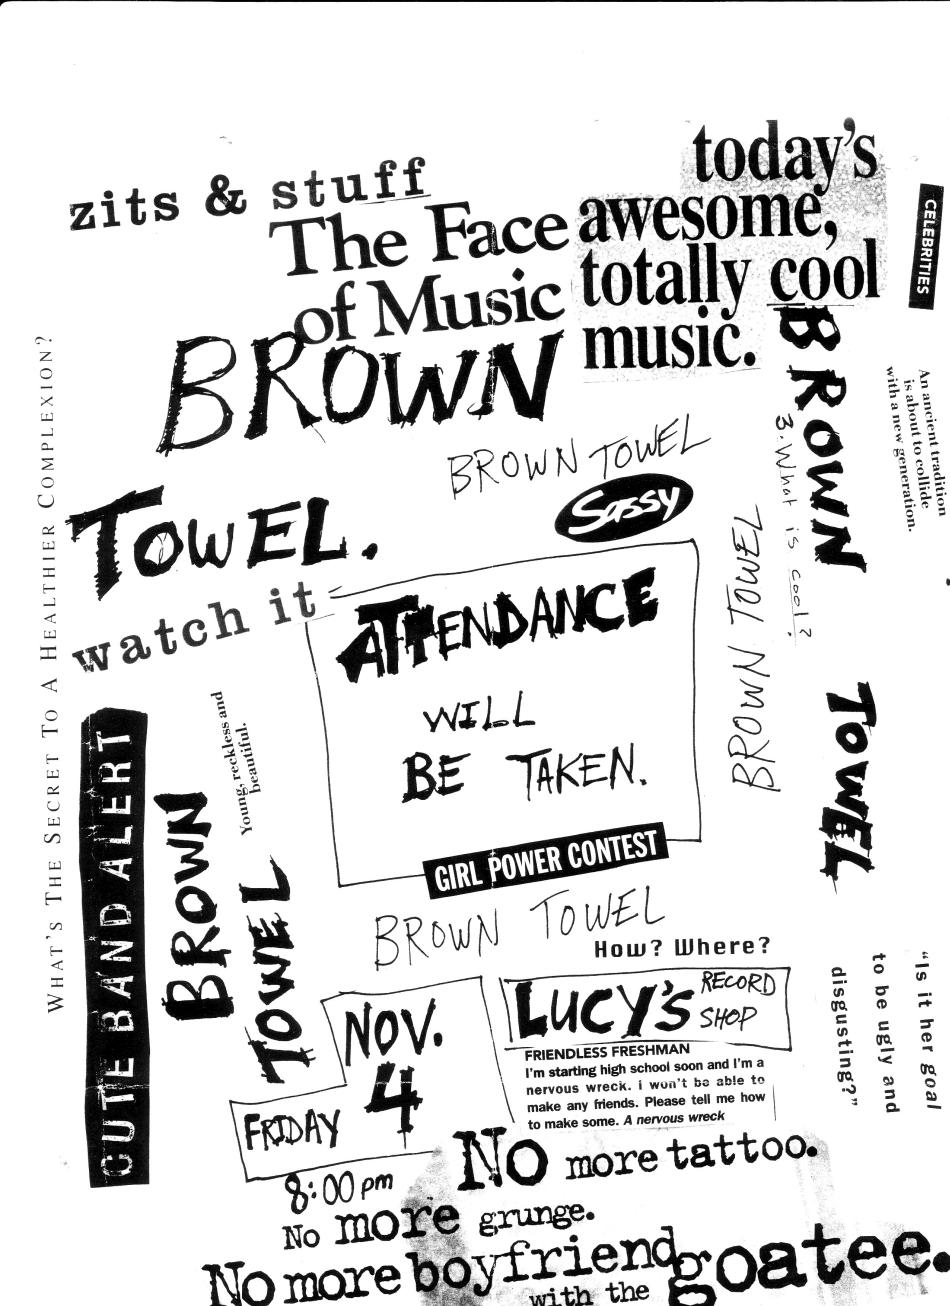 zits & stuff
The Face
of Music
today's
awesome,
totally cool
music.
CELEBRITIES
BROWN
TOWEL.
BROWN TOWEL
Sassy
BROWN
TOWEL
3. What is cool?
An ancient tradition
is about to collide
with a new generation.
WHAT'S THE SECRET TO A HEALTHIER COMPLEXION?
watch it
ATTENDANCE
WILL
BE TAKEN.
BROWN TOWEL
CUTE BAND ALERT
Young, reckless and
beautiful.
BROWN
TOWEL
GIRL POWER CONTEST
BROWN TOWEL
How? Where?
LUCY'S RECORD
SHOP
FRIENDLESS FRESHMAN
I'm starting high school soon and I'm a
nervous wreck. i won't be able to
make any friends. Please tell me how
to make some. A nervous wreck
"Is it her goal
to be ugly and
disgusting?"
NOV.
4
FRIDAY
8:00 pm
No more tattoo.
No more grunge.
No more boyfriend
with the goatee.